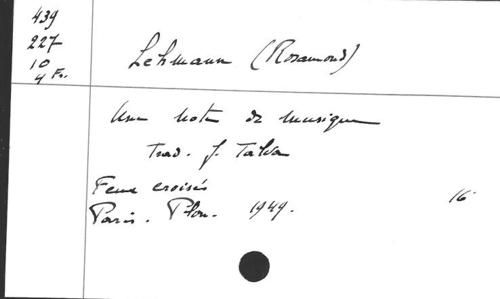 439
227
10
4 Fr.
Lehmann (Rosamond)
Une Note de musique
Trad. J. Talva
Feux croisés
Paris. Plon. 1949.
16